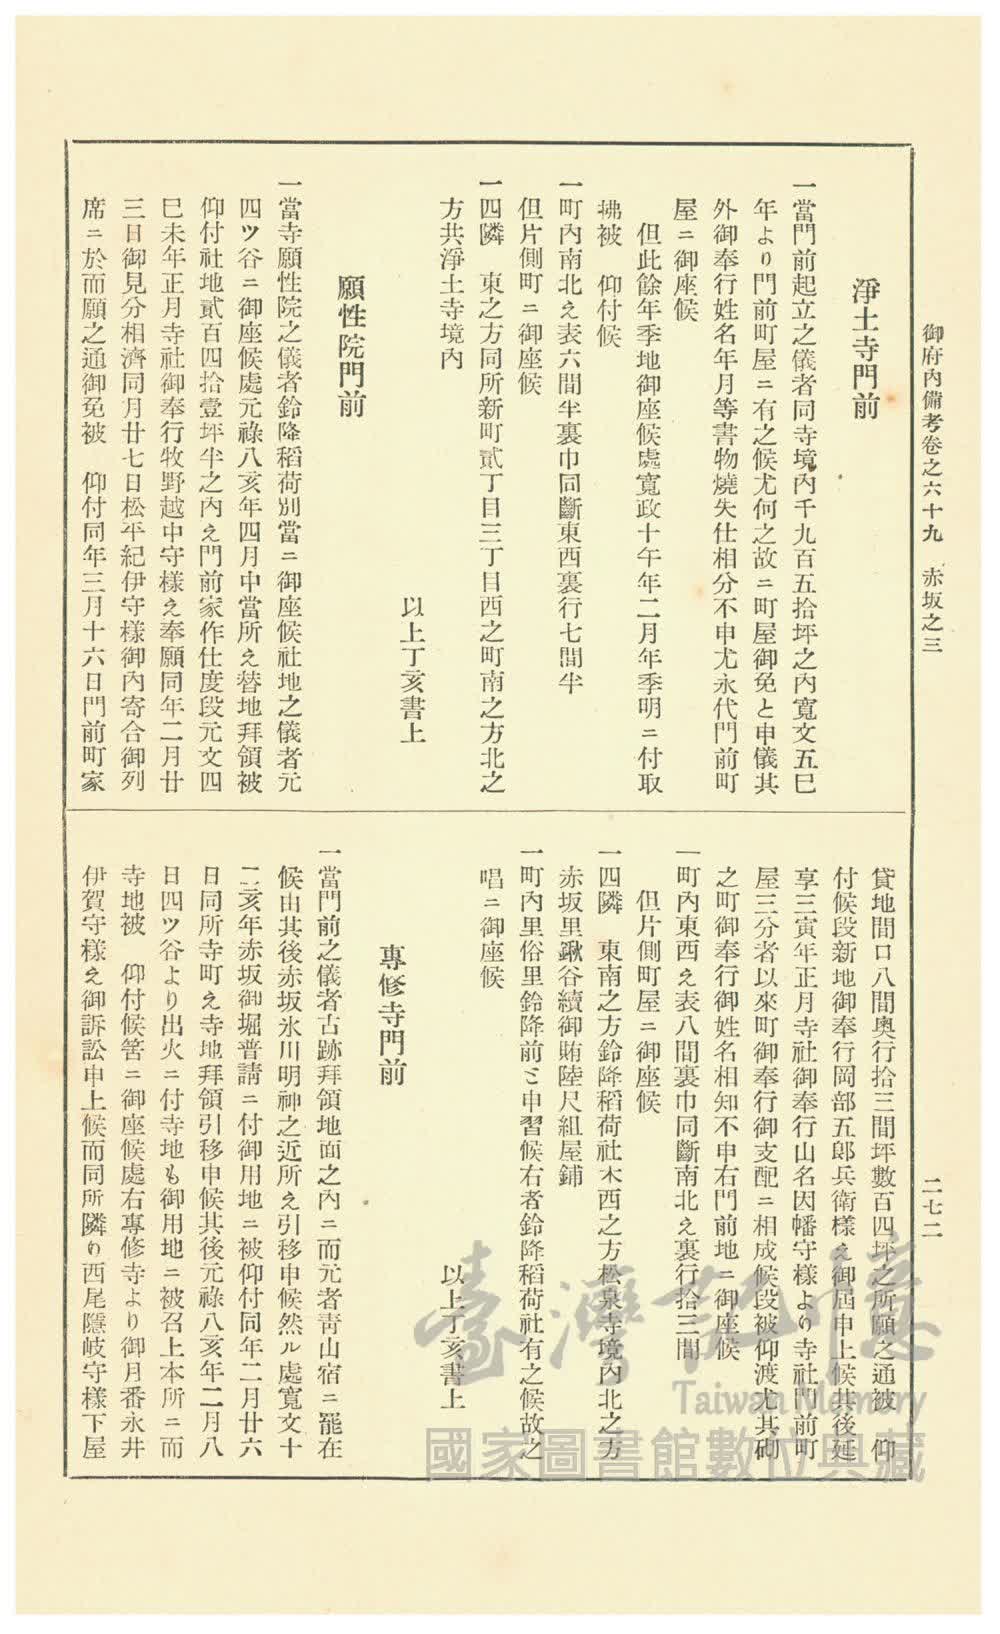 御府內備考卷之六十九　赤坂之三
二七二
淨土寺門前
一當門前起立之儀者同寺境內千九百五拾坪之內寬文五巳
年より門前町屋ニ有之候尤何之故ニ町屋御免と申儀其
外御奉行姓名年月等書物燒失仕相分不申尤永代門前町
屋ニ御座候
但此餘年季地御座候處寬政十午年二月年季明ニ付取
拂被　仰付候
一町內南北え表六間半裏巾同斷東西裏行七間半
但片側町ニ御座候
一四隣　東之方同所新町貳丁目三丁目西之町南之方北之
方共淨土寺境內
以上丁亥書上
願性院門前
一當寺願性院之儀者鈴降稻荷別當ニ御座候社地之儀者元
四ツ谷ニ御座候處元祿八亥年四月中當所え替地拜領被
仰付社地貳百四拾壹坪半之內え門前家作仕度段元文四
巳未年正月寺社御奉行牧野越中守樣え奉願同年二月廿
三日御見分相濟同月廿七日松平紀伊守樣御內寄合御列
席ニ於而願之通御免被　仰付同年三月十六日門前町家
貸地間口八間奧行拾三間坪數百四坪之所願之通被　仰
付候段新地御奉行岡部五郎兵衛樣え御屆申上候其後延
享三寅年正月寺社御奉行山名因幡守樣より寺社門前町
屋三分者以來町御奉行御支配ニ相成候段被仰渡尤其砌
之町御奉行御姓名相知不申右門前地ニ御座候
一町內東西え表八間裏巾同斷南北え裏行拾三間
但片側町屋ニ御座候
一四隣　東南之方鈴降稻荷社木西之方松泉寺境內北之方
赤坂里鍬谷續御賄陸尺組屋鋪
一町內里俗里鈴降前と申習候右者鈴降稻荷社有之候故之
唱ニ御座候
以上丁亥書上
專修寺門前
一當門前之儀者古跡拜領地面之內ニ而元者靑山宿ニ罷在
候由其後赤坂氷川明神之近所え引移申候然ル處寬文十
二亥年赤坂御堀普請ニ付御用地ニ被仰付同年二月廿六
日同所寺町え寺地拜領引移申候其後元祿八亥年二月八
日四ツ谷より出火ニ付寺地も御用地ニ被召上本所ニ而
寺地被　仰付候筈ニ御座候處右專修寺より御月番永井
伊賀守樣え御訴訟申上候而同所隣り西尾隱岐守樣下屋
臺灣記憶
Taiwan Memory
國家圖書館數位典藏